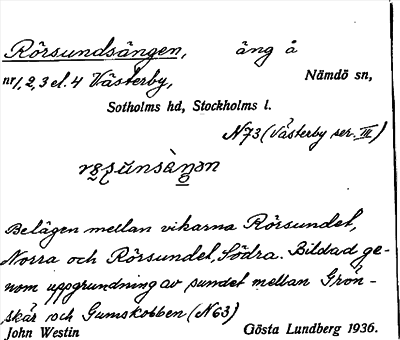 Rörsundsängen, äng å
nr 1, 2, 3 el. 4 Västerby, Nämdö sn,
Sotholms hd, Stockholms l.
N73 (Västerby ser. III)
Belägen mellan vikarna Rörsundet,
Norra och Rörsundet, Södra. Bildad ge-
nom uppgrundning av sundet mellan Grön-
skär och Gumskobben (N63)
John Westin Gösta Lundberg 1936.